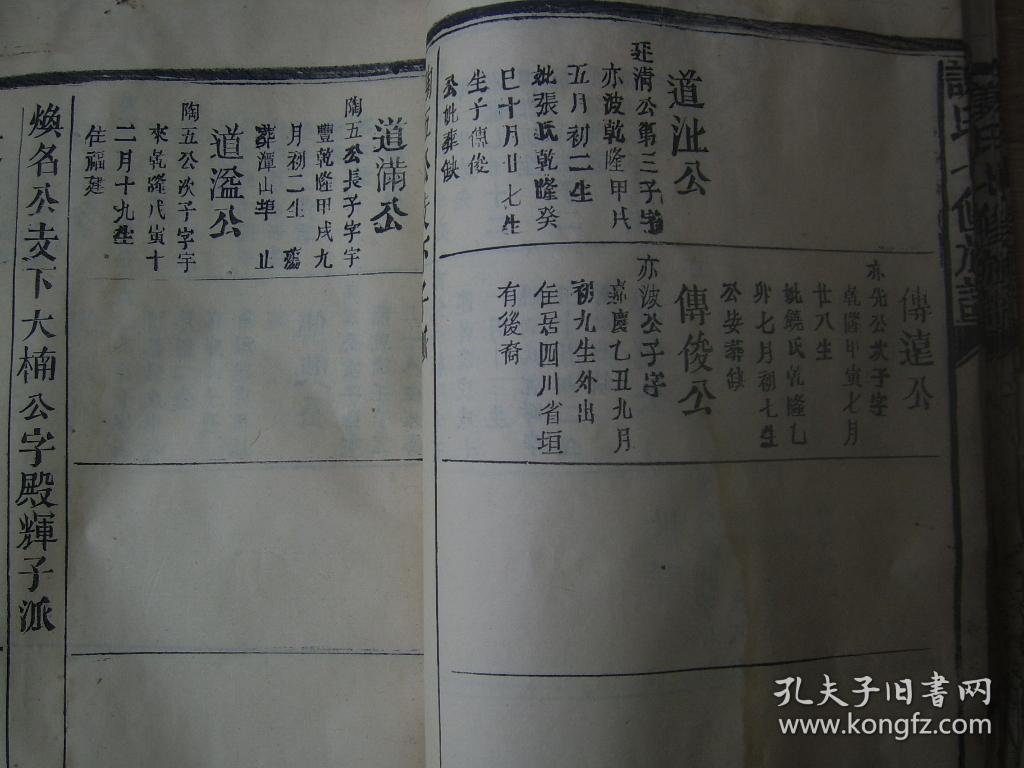 道沚公
廷清公第三子字
亦波乾隆甲戌
五月初二生
妣張氏乾隆癸
巳十月廿七生
生子傳俊
公妣葬缺
傳遠公
亦先公次子字
乾隆甲寅七月
廿八生
妣饒氏乾隆乙
卯七月初七生
公妣葬缺
傳俊公
亦波公子字
嘉慶乙丑九月
初九生外出
住居四川省垣
有後裔
道滿公
陶五公長子字字
豐乾隆甲戌九
月初二生 歿
葬潭山埠 止
道溢公
陶五公次子字宇
來乾隆戊寅十
二月十九生
住福建
煥名公支下大楠公字殿輝子派
孔夫子旧书网
www.kongfz.com